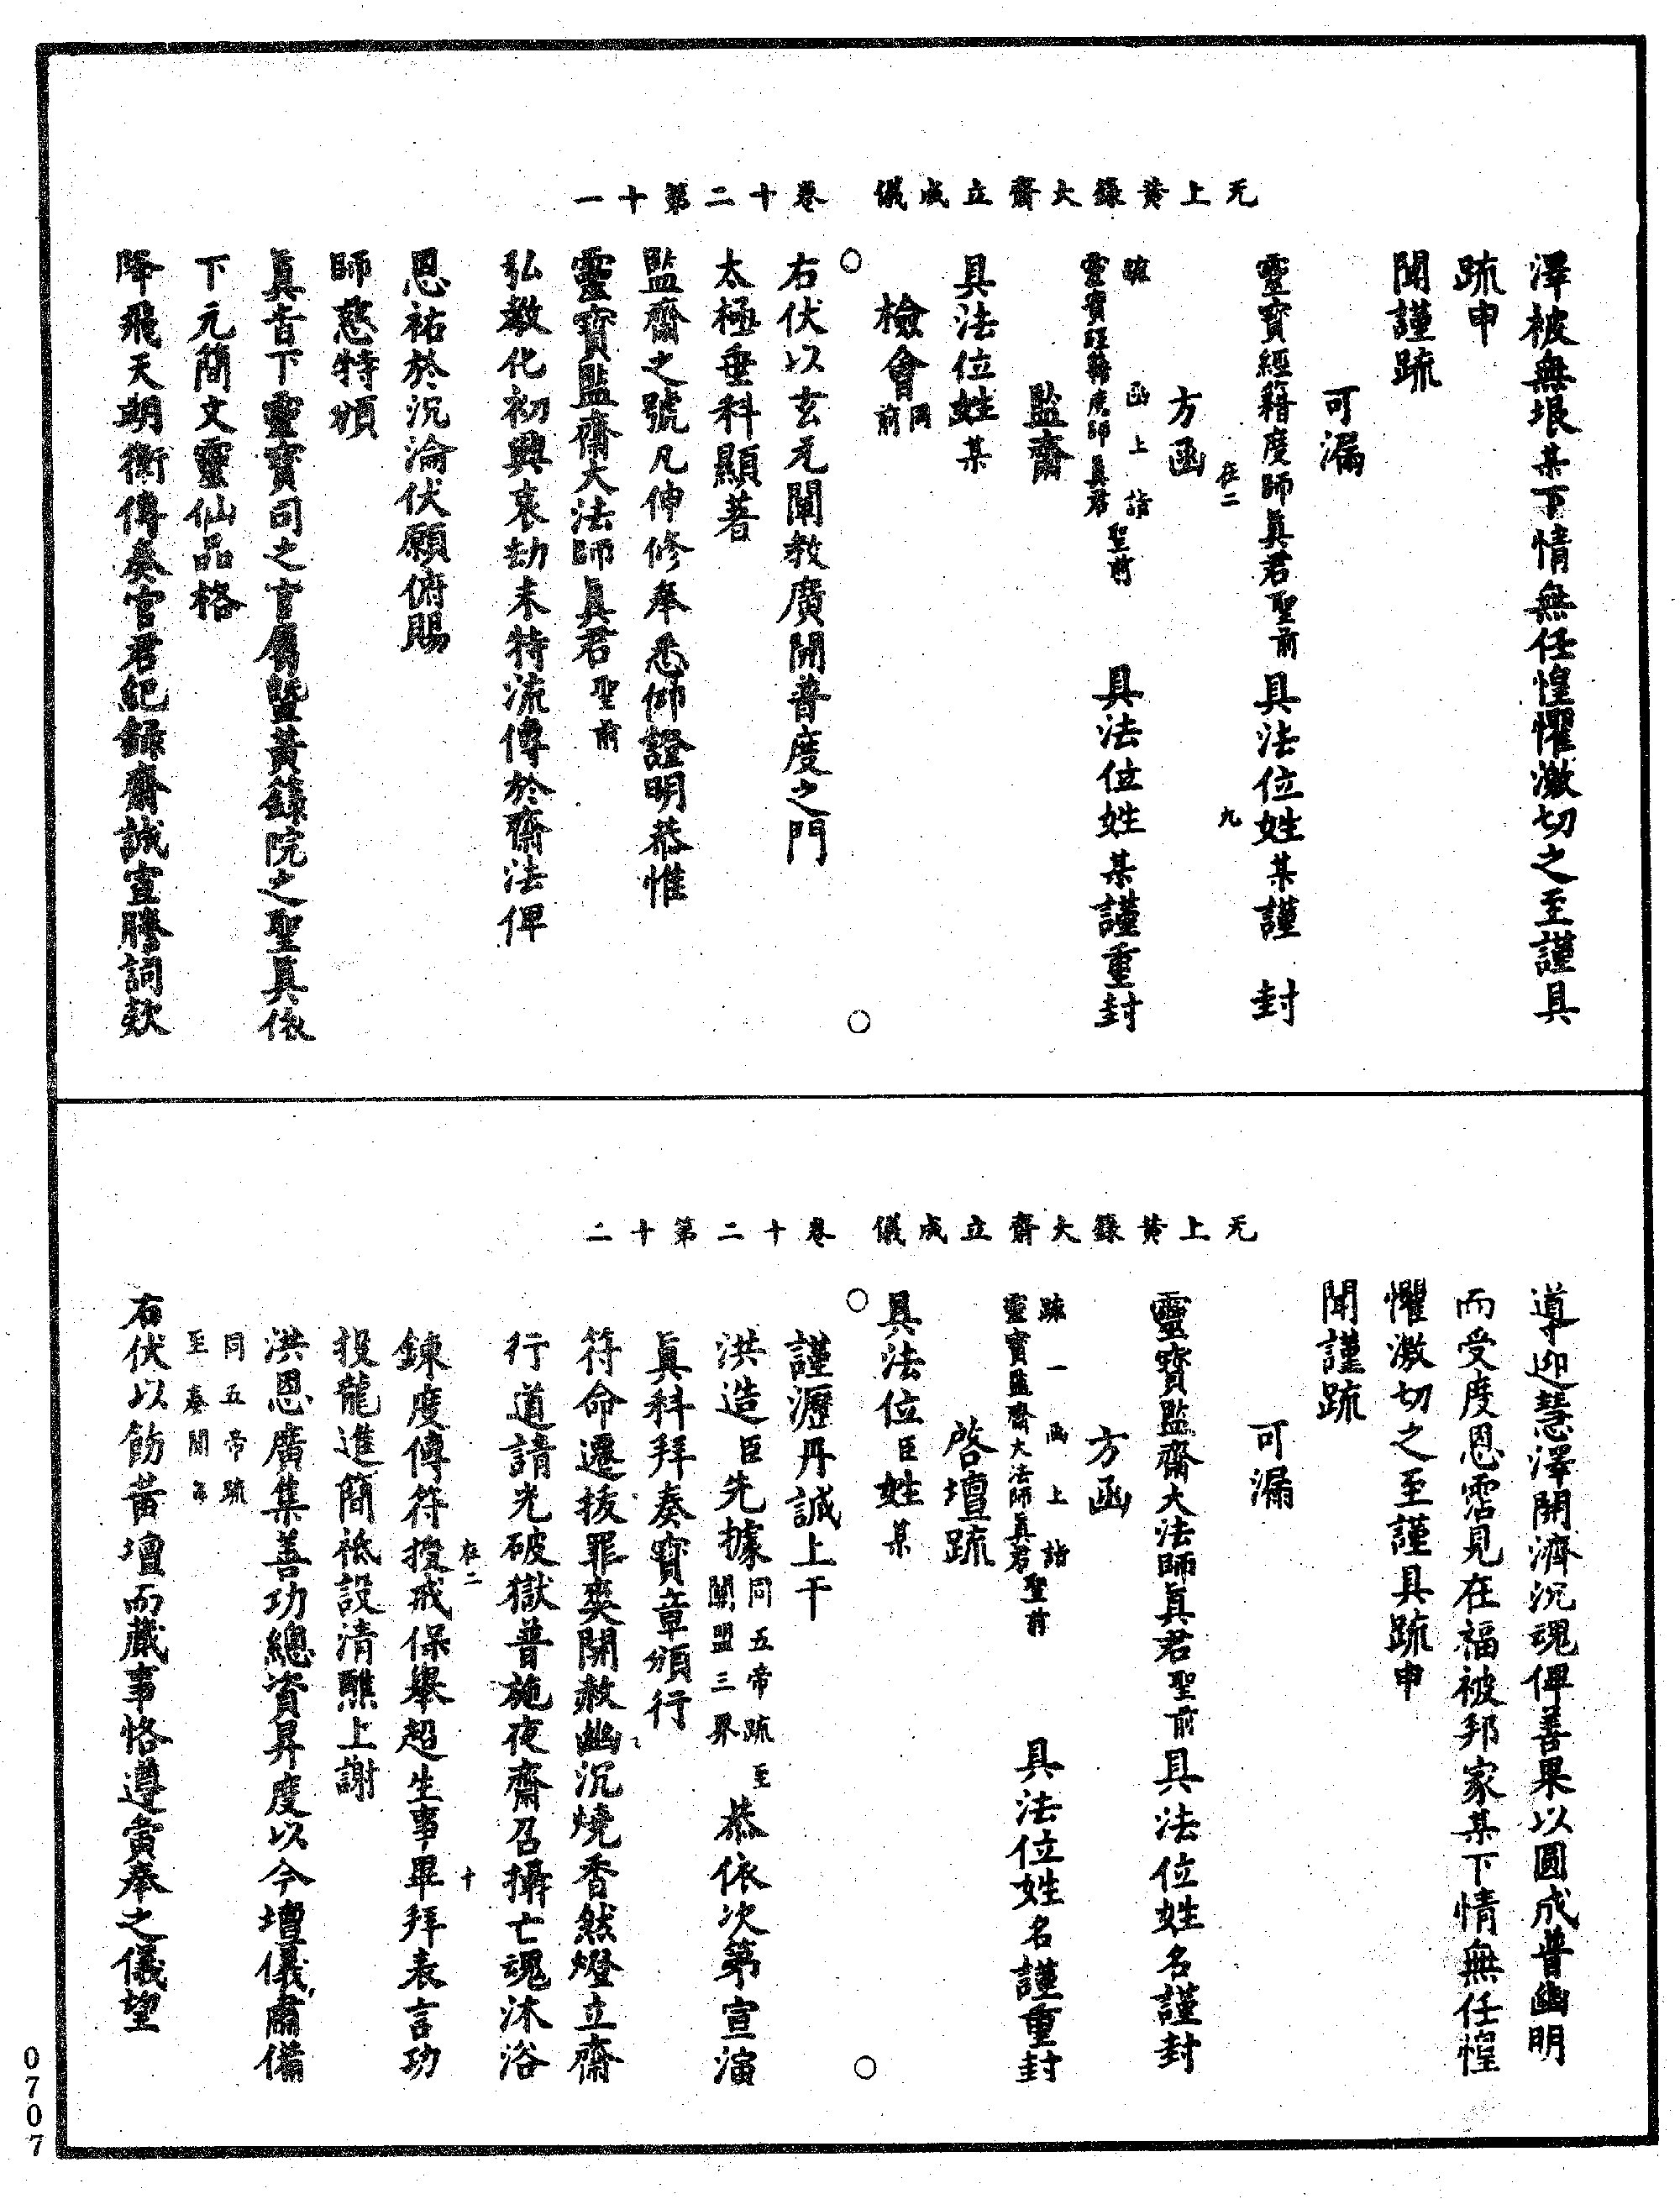 无上黄籙大齋立成儀　卷十二第十一
澤被無垠某下情無任惶懼激切之至謹具
疏申
聞謹疏
可漏
靈寶經籍度師眞君聖前　具法位姓某謹　封
在二　九
方函
疏　函　上　詣
靈寶經籍度師眞君聖前　具法位姓某謹重封
監齋
具法位姓某
檢會同前
右伏以玄元闡教廣開普度之門
太極垂科顯著
監齋之號凡伸修奉悉仰證明恭惟
靈寶監齋大法師眞君聖前
弘教化初興哀劫末特流傳於齋法俾
恩祐於沉淪伏願俯賜
師慈特頒
眞旨下靈寶司之官屬曁黃籙院之聖眞依
下元簡文靈仙品格
降飛天翊衛傳奏官君紀錄齋誠宣騰詞欵
无上黄籙大齋立成儀　卷十二第十二
導迎慧澤開濟沉魂俾善果以圓成普幽明
而受度恩霑見在福被邦家某下情無任惶
懼激切之至謹具疏申
聞謹疏
可漏
靈寶監齋大法師眞君聖前具法位姓名謹封
方函
疏　一　函　上　詣
靈寶監齋大法師眞君聖前　具法位姓名謹重封
啓壇疏
具法位臣姓某
謹瀝丹誠上干
洪造臣先據同五帝疏至闡盟三界恭依次第宣演
眞科拜奏寶章頒行
符命遷拔罪爽開赦幽沉燒香然燈立齋
行道請光破獄普施夜齋召攝亡魂沐浴
在二　十
鍊度傳符授戒保舉超生事畢拜表言功
投龍進簡祗設清醮上謝
洪恩廣集善功總資昇度以今壇儀肅備
同五帝疏
至奏聞年
右伏以飭黃壇而蕆事恪遵齋奉之儀望
0707